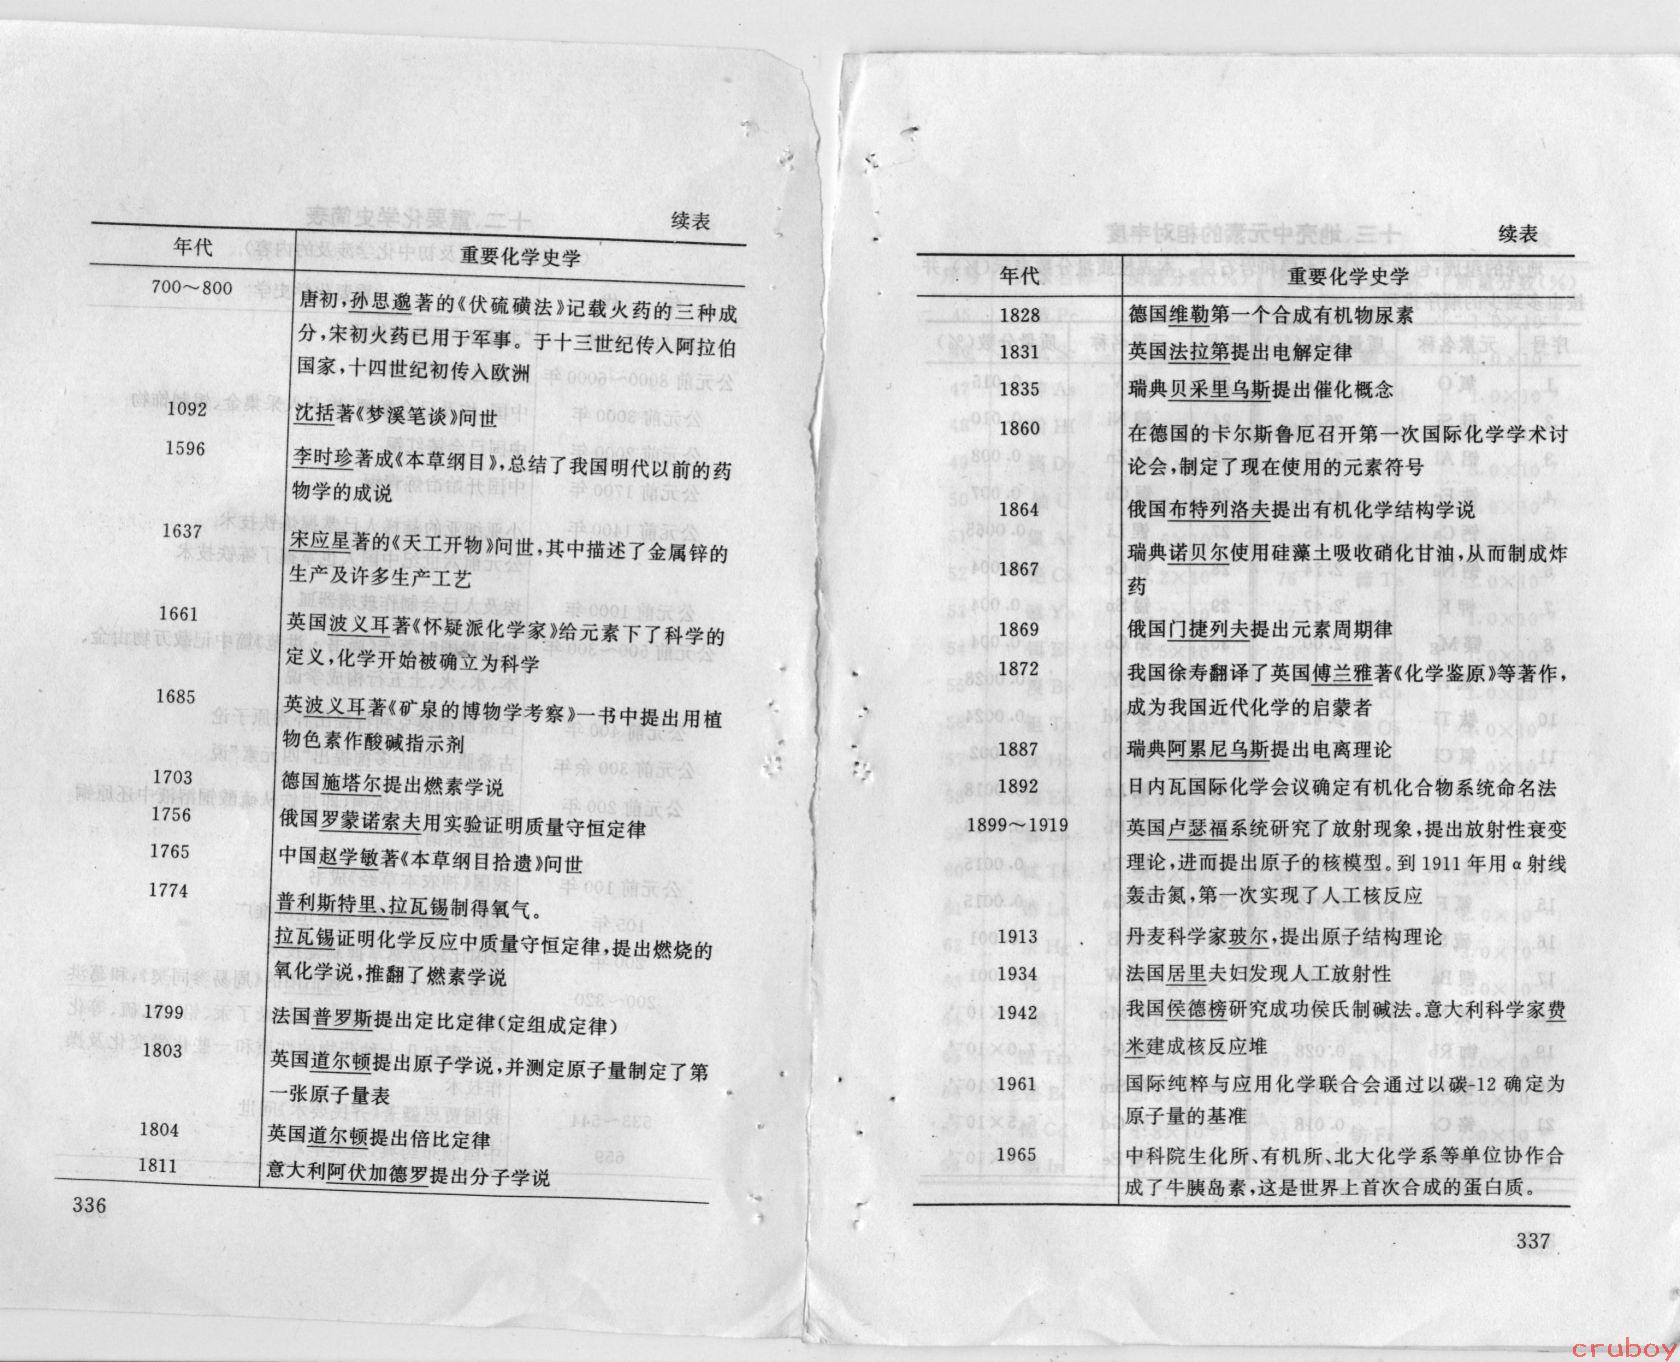 续表
年代 重要化学史学
700～800 唐初,孙思邈著的《伏硫磺法》记载火药的三种成
分,宋初火药已用于军事。于十三世纪传入阿拉伯
国家,十四世纪初传入欧洲
1092 沈括著《梦溪笔谈》问世
1596 李时珍著成《本草纲目》,总结了我国明代以前的药
物学的成说
1637 宋应星著的《天工开物》问世,其中描述了金属锌的
生产及许多生产工艺
1661 英国波义耳著《怀疑派化学家》给元素下了科学的
定义,化学开始被确立为科学
1685 英波义耳著《矿泉的博物学考察》一书中提出用植
物色素作酸碱指示剂
1703 德国施塔尔提出燃素学说
1756 俄国罗蒙诺索夫用实验证明质量守恒定律
1765 中国赵学敏著《本草纲目拾遗》问世
1774 普利斯特里、拉瓦锡制得氧气。
拉瓦锡证明化学反应中质量守恒定律,提出燃烧的
氧化学说,推翻了燃素学说
1799 法国普罗斯提出定比定律(定组成定律)
1803 英国道尔顿提出原子学说,并测定原子量制定了第
一张原子量表
1804 英国道尔顿提出倍比定律
1811 意大利阿伏加德罗提出分子学说
336
续表
年代 重要化学史学
1828 德国维勒第一个合成有机物尿素
1831 英国法拉第提出电解定律
1835 瑞典贝采里乌斯提出催化概念
1860 在德国的卡尔斯鲁厄召开第一次国际化学学术讨
论会,制定了现在使用的元素符号
1864 俄国布特列洛夫提出有机化学结构学说
1867 瑞典诺贝尔使用硅藻土吸收硝化甘油,从而制成炸
药
1869 俄国门捷列夫提出元素周期律
1872 我国徐寿翻译了英国傅兰雅著《化学鉴原》等著作,
成为我国近代化学的启蒙者
1887 瑞典阿累尼乌斯提出电离理论
1892 日内瓦国际化学会议确定有机化合物系统命名法
1899～1919 英国卢瑟福系统研究了放射现象,提出放射性衰变
理论,进而提出原子的核模型。到1911年用α射线
轰击氮,第一次实现了人工核反应
1913 丹麦科学家玻尔,提出原子结构理论
1934 法国居里夫妇发现人工放射性
1942 我国侯德榜研究成功侯氏制碱法。意大利科学家费
米建成核反应堆
1961 国际纯粹与应用化学联合会通过以碳-12确定为
原子量的基准
1965 中科院生化所、有机所、北大化学系等单位协作合
成了牛胰岛素,这是世界上首次合成的蛋白质。
337
cruboy